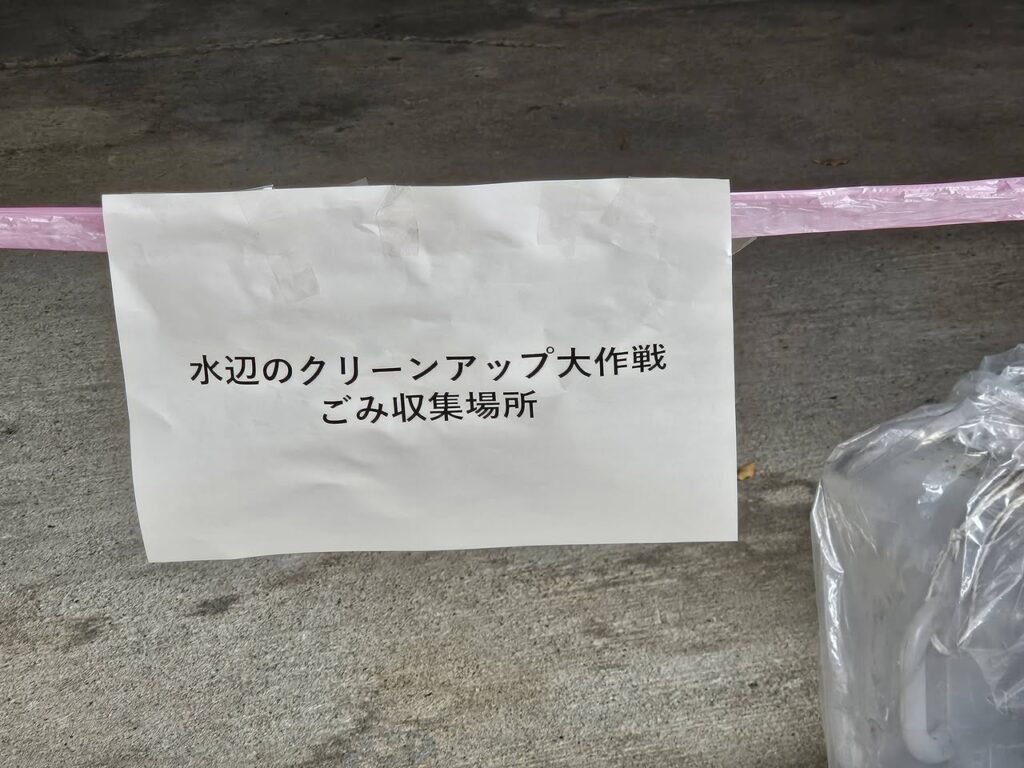 水辺のクリーンアップ大作戦
ごみ収集場所